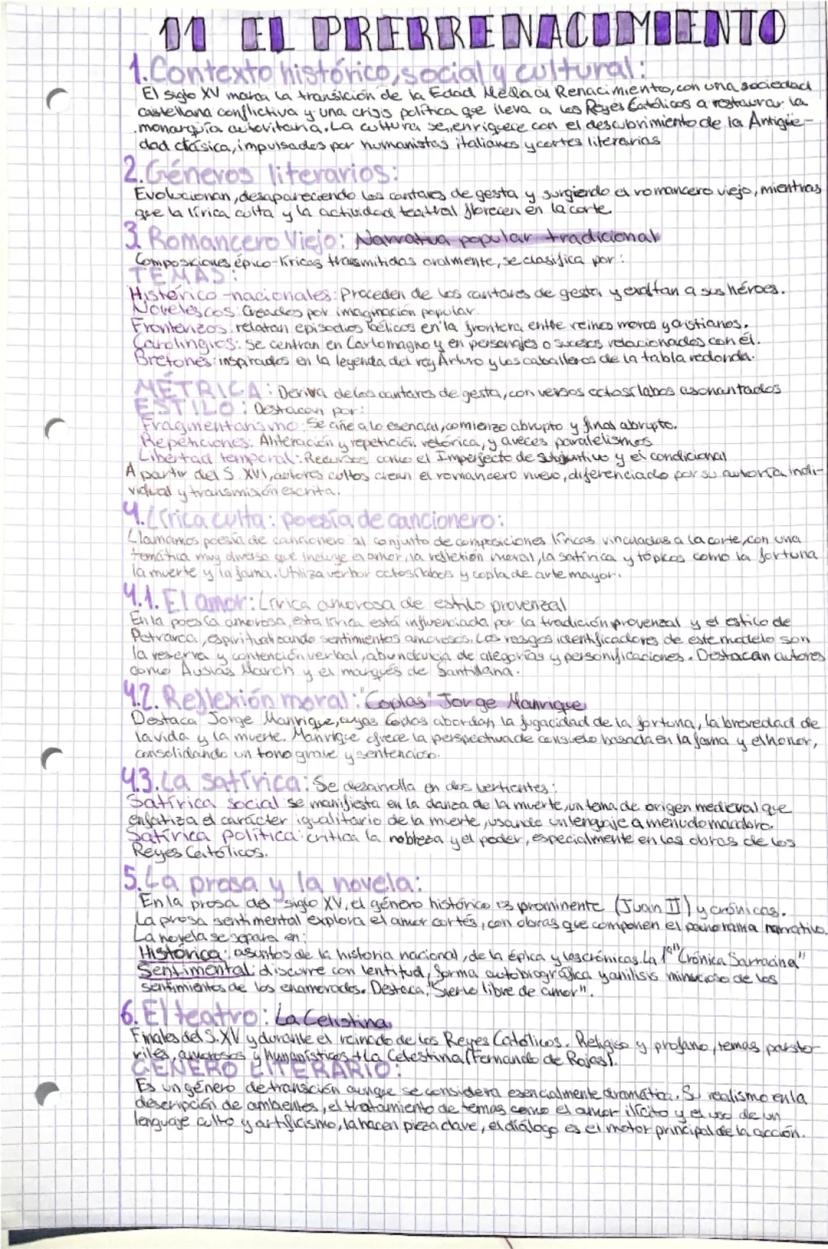 11 EL PRERRENACIMIENTO
1. Contexto histórico, social y cultural:
El siglo XV marca la transición de la Edad Media al Renacimiento, con una sociedad
castellana conflictiva y una crisis política que lleva a los Reyes Católicos a restaurar la
monarquía autoritaria. La cultura se enriquece con el descubrimiento de la Antigüe-
dad clásica, impulsados por humanistas italianos y cortes literarias
2. Géneros literarios:
Evolucionan, desapareciendo los cantares de gesta y surgiendo el romancero viejo, mientras
que la lírica culta y la actividad teatral florecen en la corte.
3. Romancero Viejo: Narrativa popular tradicional
Composiciones épico-líricas transmitidas oralmente, se clasifica por:
TEMAS:
Histórico-nacionales: Proceden de los cantares de gesta y exaltan a sus héroes.
Novelescos: Creados por imaginación popular.
Fronterizos: relatan episodios bélicos en la frontera entre reinos moros y cristianos.
Carolingios: se centran en Carlomagno y en personajes o sucesos relacionados con él.
Bretones: inspirados en la leyenda del rey Arturo y los caballeros de la tabla redonda.
MÉTRICA: Deriva de los cantares de gesta, con versos octosílabos asonantados
ESTILO: Destacan por:
Fragmentarismo: Se ciñe a lo esencial, comienzo abrupto y final abrupto.
Repeticiones: Aliteración y repetición retórica, y a veces paralelismos
Libertad temporal: Recursos como el Imperfecto de subjuntivo y el condicional
A partir del S. XVI, autores cultos crean el romancero nuevo, diferenciado por su autoría indi-
vidual y transmisión escrita.
4. Lírica culta: poesía de cancionero:
Llamamos poesía de cancionero al conjunto de composiciones líricas vinculadas a la corte, con una
temática muy diversa que incluye el amor, la reflexión moral, la satírica y tópicos como la fortuna
la muerte y la fama. Utiliza octosílabos y copla de arte mayor.
4.1. El amor: Lírica amorosa de estilo provenzal
En la poesía amorosa, esta lírica está influenciada por la tradición provenzal y el estilo de
Petrarca, espiritualizando sentimientos amorosos. Los rasgos identificadores de este modelo son
la reserva y contención verbal, abundancia de alegorías y personificaciones. Destacan autores
como Ausiàs March y el marqués de Santillana.
4.2. Reflexión moral: "Coplas" Jorge Manrique
Destaca Jorge Manrique, cuyas Coplas abordan la fugacidad de la fortuna, la brevedad de
la vida y la muerte. Manrique ofrece la perspectiva de consuelo basada en la fama y el honor,
consolidando un tono grave y sentencioso.
4.3. La satírica: Se desarrolla en dos vertientes:
Satírica social se manifiesta en la danza de la muerte, un tema de origen medieval que
enfatiza el carácter igualitario de la muerte, usando un lenguaje a menudo macabro.
Satírica política: critica la nobleza y el poder, especialmente en las obras de los
Reyes Católicos.
5. La prosa y la novela:
En la prosa del siglo XV, el género histórico es prominente (Juan II) y crónicas.
La prosa sentimental explora el amor cortés, con obras que componen el panorama narrativo.
La novela se separa en:
Histórica: asuntos de la historia nacional, de la épica y las crónicas. La 1ª "Crónica Sarracina"
Sentimental: discurre con lentitud, forma autobiográfica y análisis minucioso de los
sentimientos de los enamorados. Destaca, "Siervo libre de amor".
6. El teatro: La Celestina
Finales del S. XV y durante el reinado de los Reyes Católicos. Religioso y profano, temas pasto-
riles, amorosos y humanísticos → La Celestina (Fernando de Rojas).
GÉNERO LITERARIO:
Es un género de transición aunque se considera esencialmente dramática. Su realismo en la
descripción de ambientes, el tratamiento de temas como el amor ilícito y el uso de un
lenguaje culto y artificismo, la hacen pieza clave, el diálogo es el motor principal de la acción.